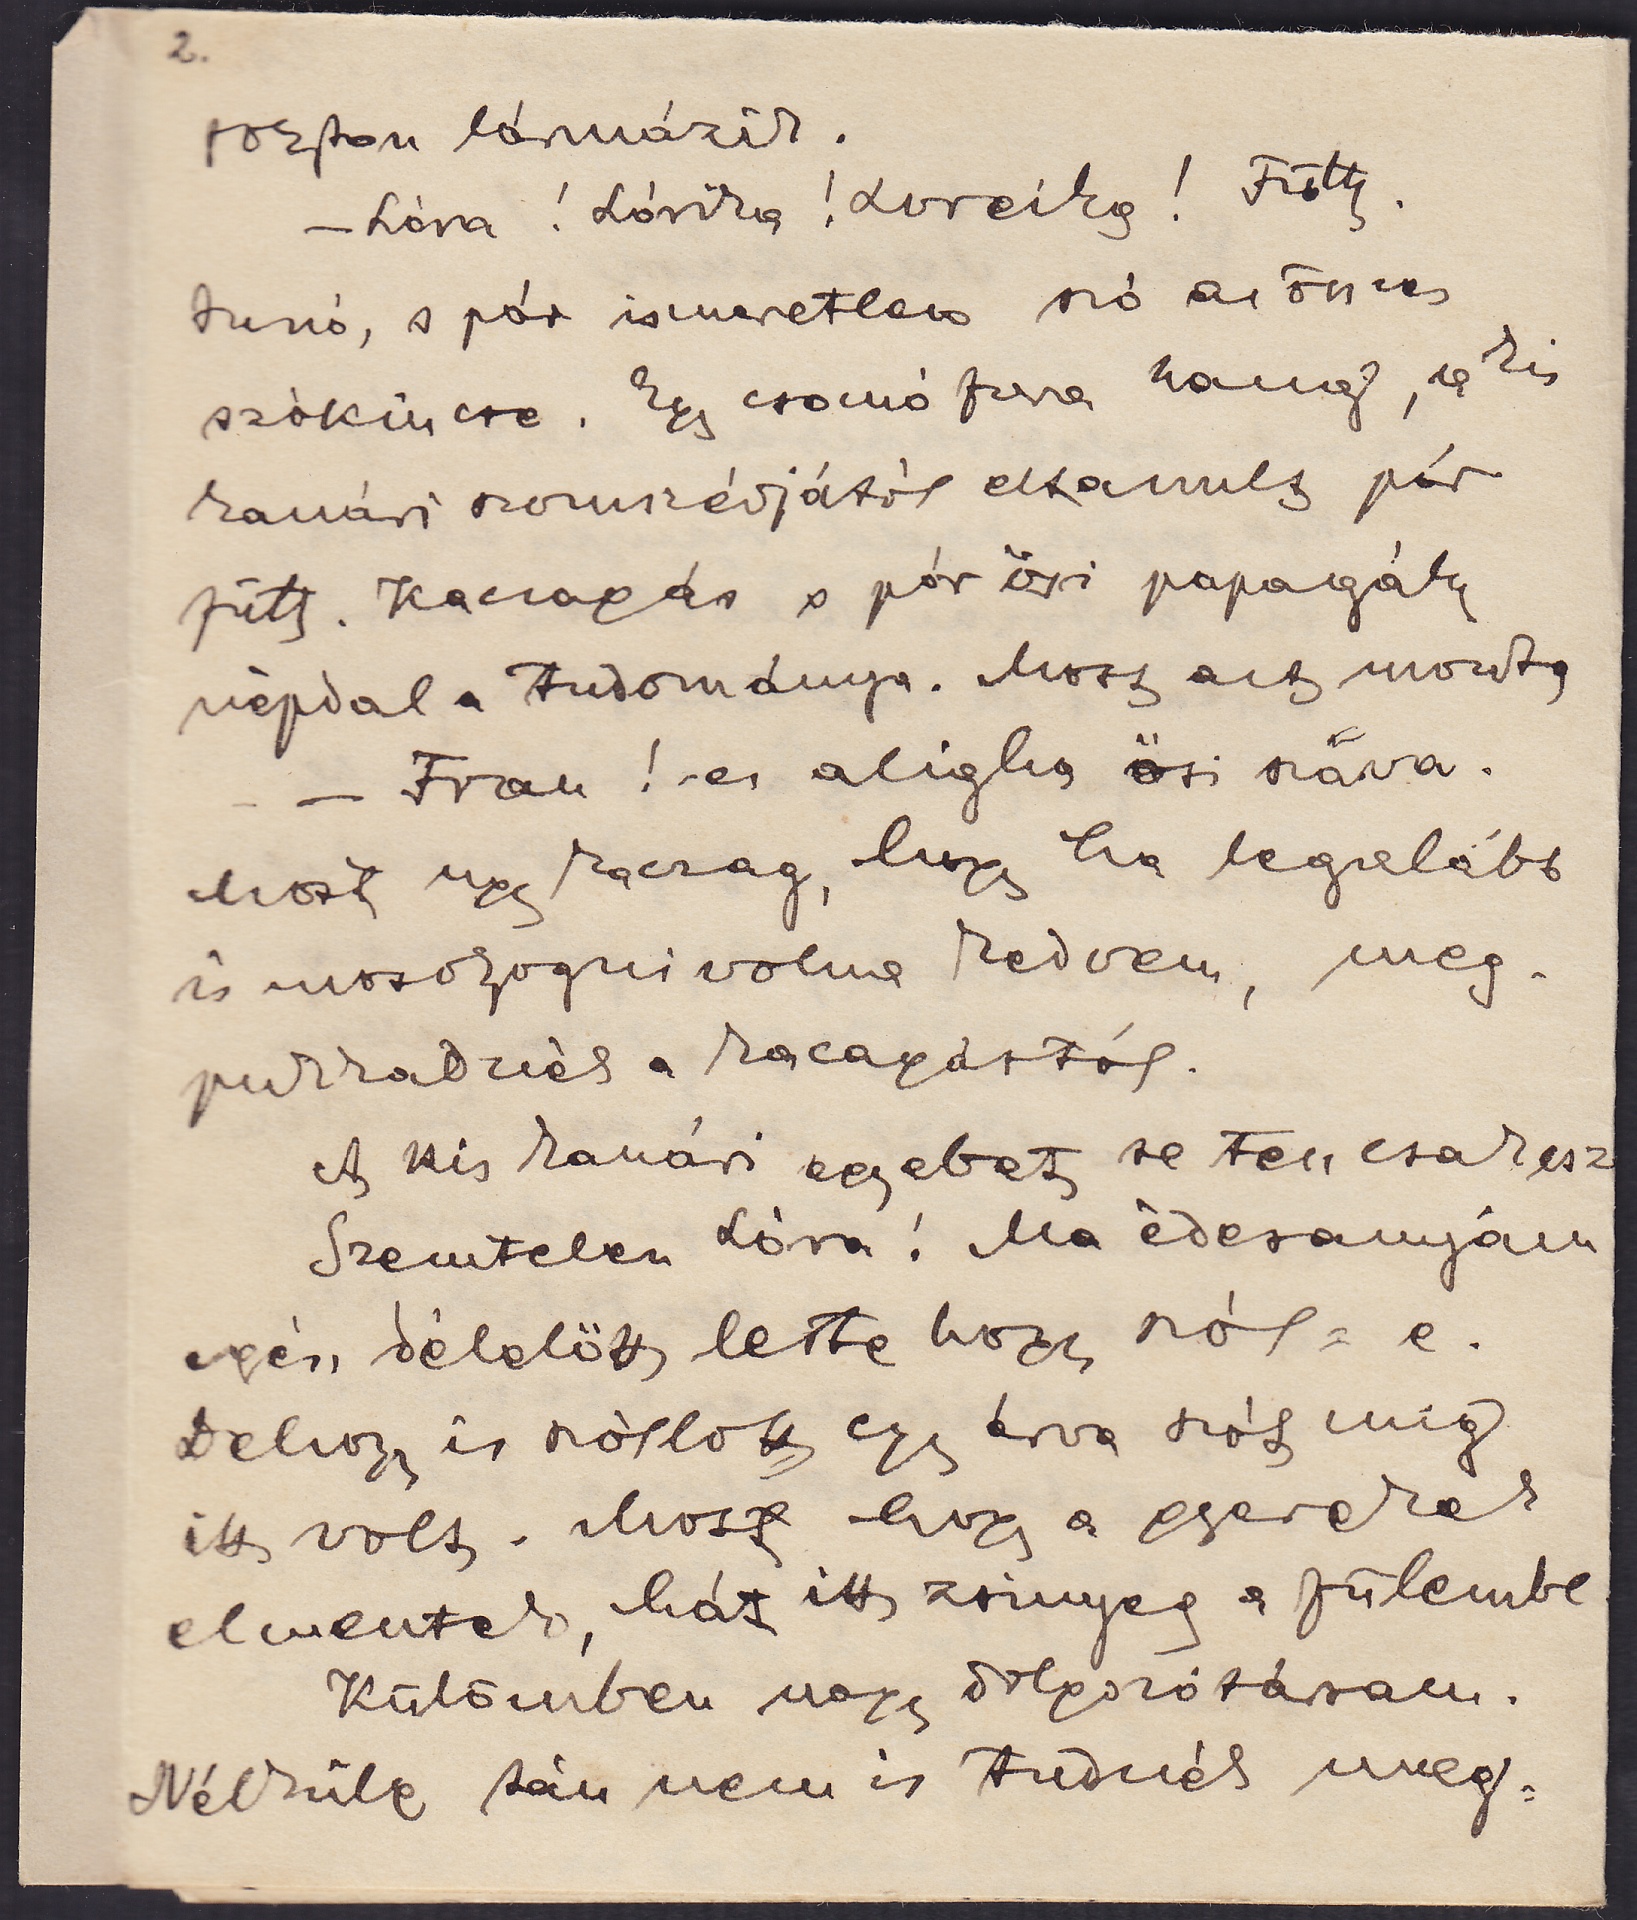 2.
folyton lármázik.
— Lóra! Lórika! Loreika! Fütty.
s pár ismeretlen szó az összes
szókincse. Egy csomó fura hang, a kis
kanári szomszédjától eltanult pár
fütty. Kacagás s pár ősi papagály
népdal a tudománya. Most azt mondta
— Frau! ez aligha ősi szava.
Most ugy kaczag, hogy ha legalább
is mosolyogni volna kedvem, meg-
pukkadnék a kacagástól.
A kis kanári egyebet se tesz csak esz
Szemtelen Lóra! Ma édesanyám
egész délelőtt leste hogy szól-e.
Dehogy is szóllott egy árva szót mig
itt volt. Most hogy a gyerekek
elmentek, hát itt zsinyeg a fülembe
Külömben nagy dolgozótársam.
Nélküle tán nem is tudnék meg=